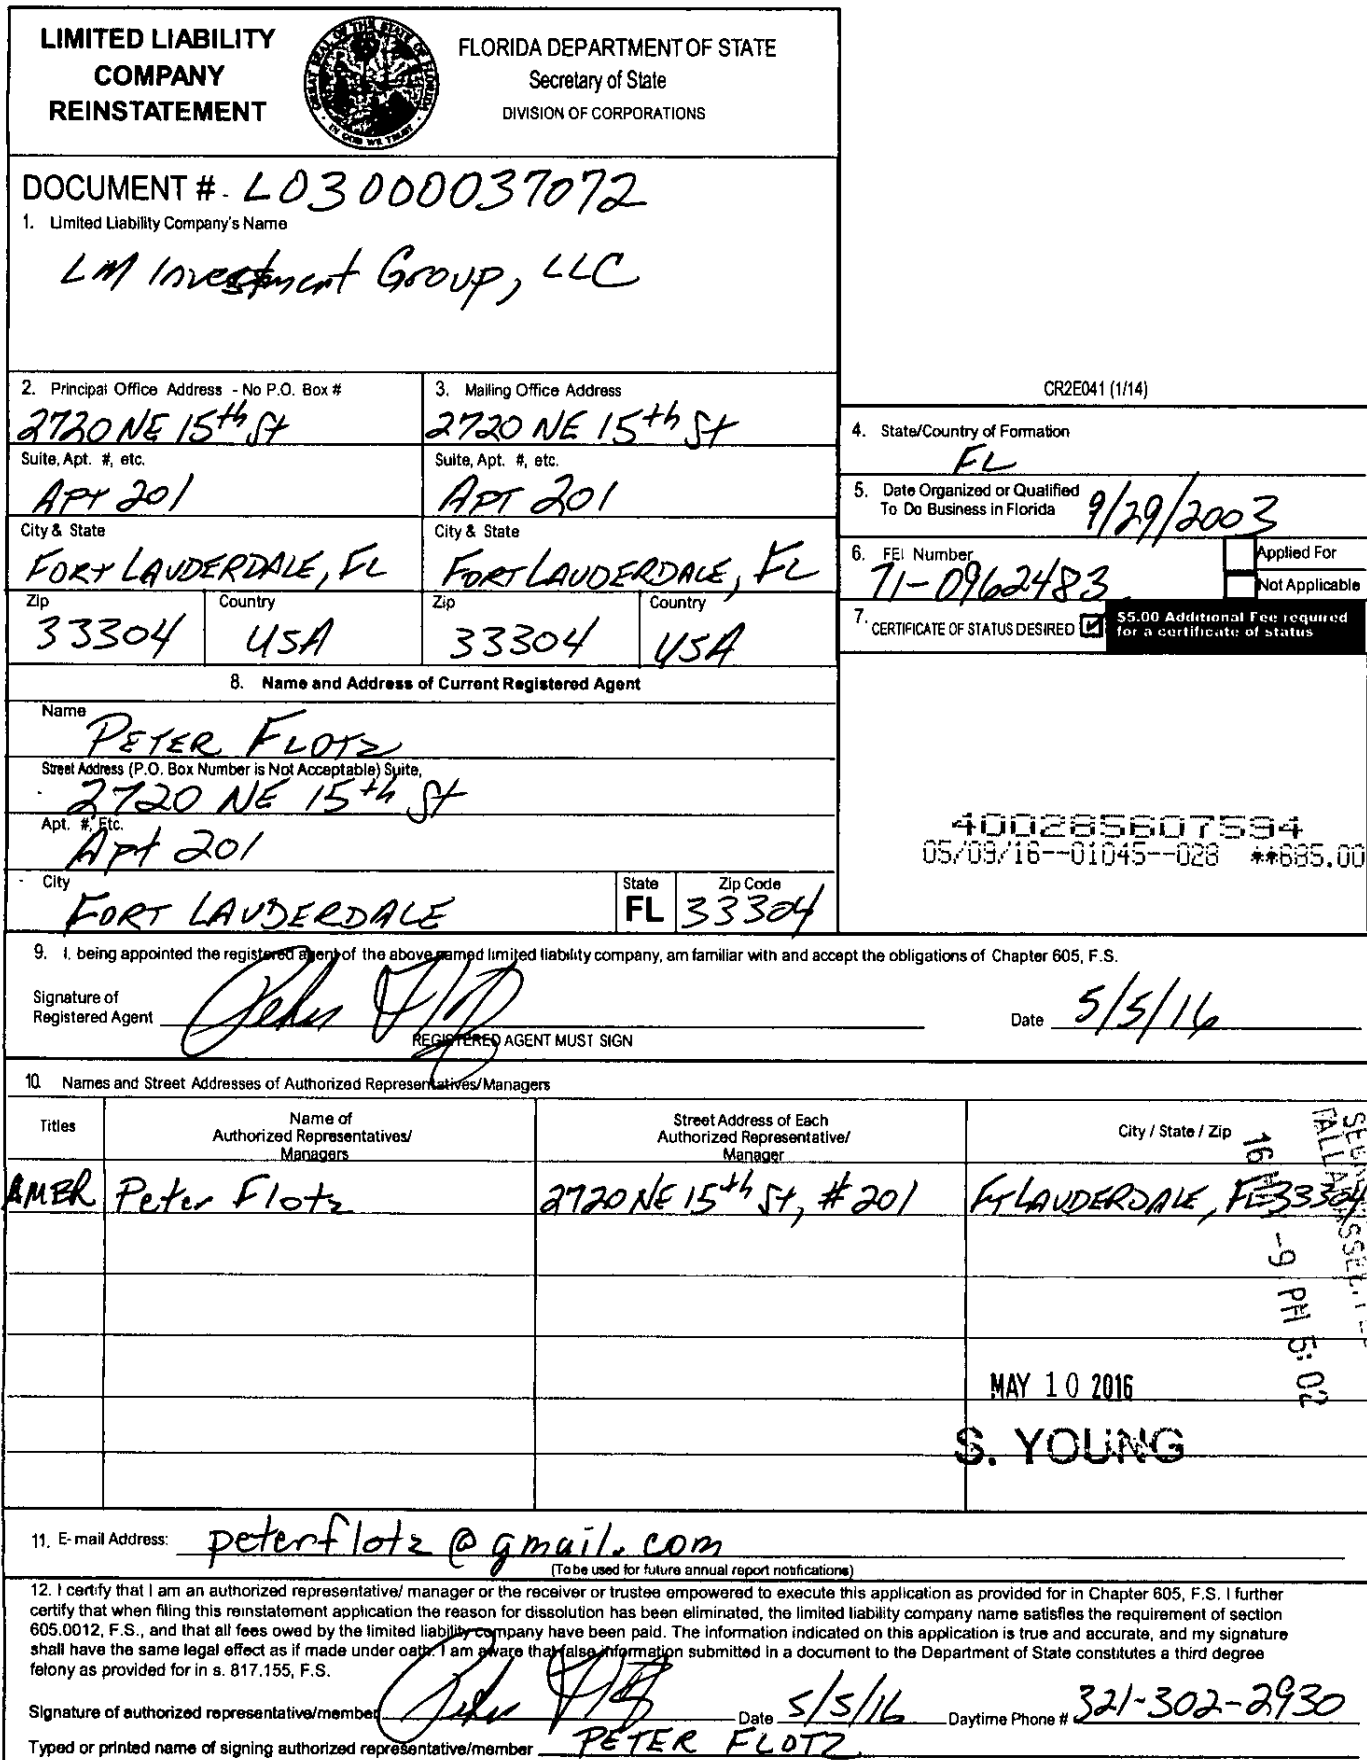 LIMITED LIABILITY
COMPANY
REINSTATEMENT
FLORIDA DEPARTMENT OF STATE
Secretary of State
DIVISION OF CORPORATIONS
DOCUMENT # - L03000037072
1. Limited Liability Company's Name
LM Investment Group, LLC
CR2E041 (1/14)
2. Principal Office Address - No P.O. Box #
2720 NE 15th St
Suite, Apt. #, etc.
APT 201
City & State
FORT LAUDERDALE, FL
Zip
33304
Country
USA
3. Mailing Office Address
2720 NE 15th St
Suite, Apt. #, etc.
APT 201
City & State
FORT LAUDERDALE, FL
Zip
33304
Country
USA
4. State/Country of Formation
FL
5. Date Organized or Qualified
To Do Business in Florida
9/29/2003
6. FEI Number
71-0962483
Applied For
Not Applicable
7. CERTIFICATE OF STATUS DESIRED
$5.00 Additional Fee required
for a certificate of status
8. Name and Address of Current Registered Agent
Name
PETER FLOTZ
Street Address (P.O. Box Number is Not Acceptable) Suite,
2720 NE 15th St
Apt. #, Etc.
Apt 201
City
FORT LAUDERDALE
State
FL
Zip Code
33304
400285607594
05/09/16--01045--028 **685.00
9. I, being appointed the registered agent of the above named limited liability company, am familiar with and accept the obligations of Chapter 605, F.S.
Signature of
Registered Agent
Peter Flotz
REGISTERED AGENT MUST SIGN
Date 5/5/16
10. Names and Street Addresses of Authorized Representatives/Managers
Titles
Name of
Authorized Representatives/
Managers
Street Address of Each
Authorized Representative/
Manager
City / State / Zip
AMBR Peter Flotz 2720 NE 15th St, # 201 Ft LAUDERDALE, FL 33304
16 -9 PM 5:02
MAY 10 2016
S. YOUNG
11. E-mail Address: peterflotz@gmail.com
(To be used for future annual report notifications)
12. I certify that I am an authorized representative/ manager or the receiver or trustee empowered to execute this application as provided for in Chapter 605, F.S. I further
certify that when filing this reinstatement application the reason for dissolution has been eliminated, the limited liability company name satisfies the requirement of section
605.0012, F.S., and that all fees owed by the limited liability company have been paid. The information indicated on this application is true and accurate, and my signature
shall have the same legal effect as if made under oath. I am aware that false information submitted in a document to the Department of State constitutes a third degree
felony as provided for in s. 817.155, F.S.
Signature of authorized representative/member Peter Flotz Date 5/5/16 Daytime Phone # 321-302-2930
Typed or printed name of signing authorized representative/member PETER FLOTZ